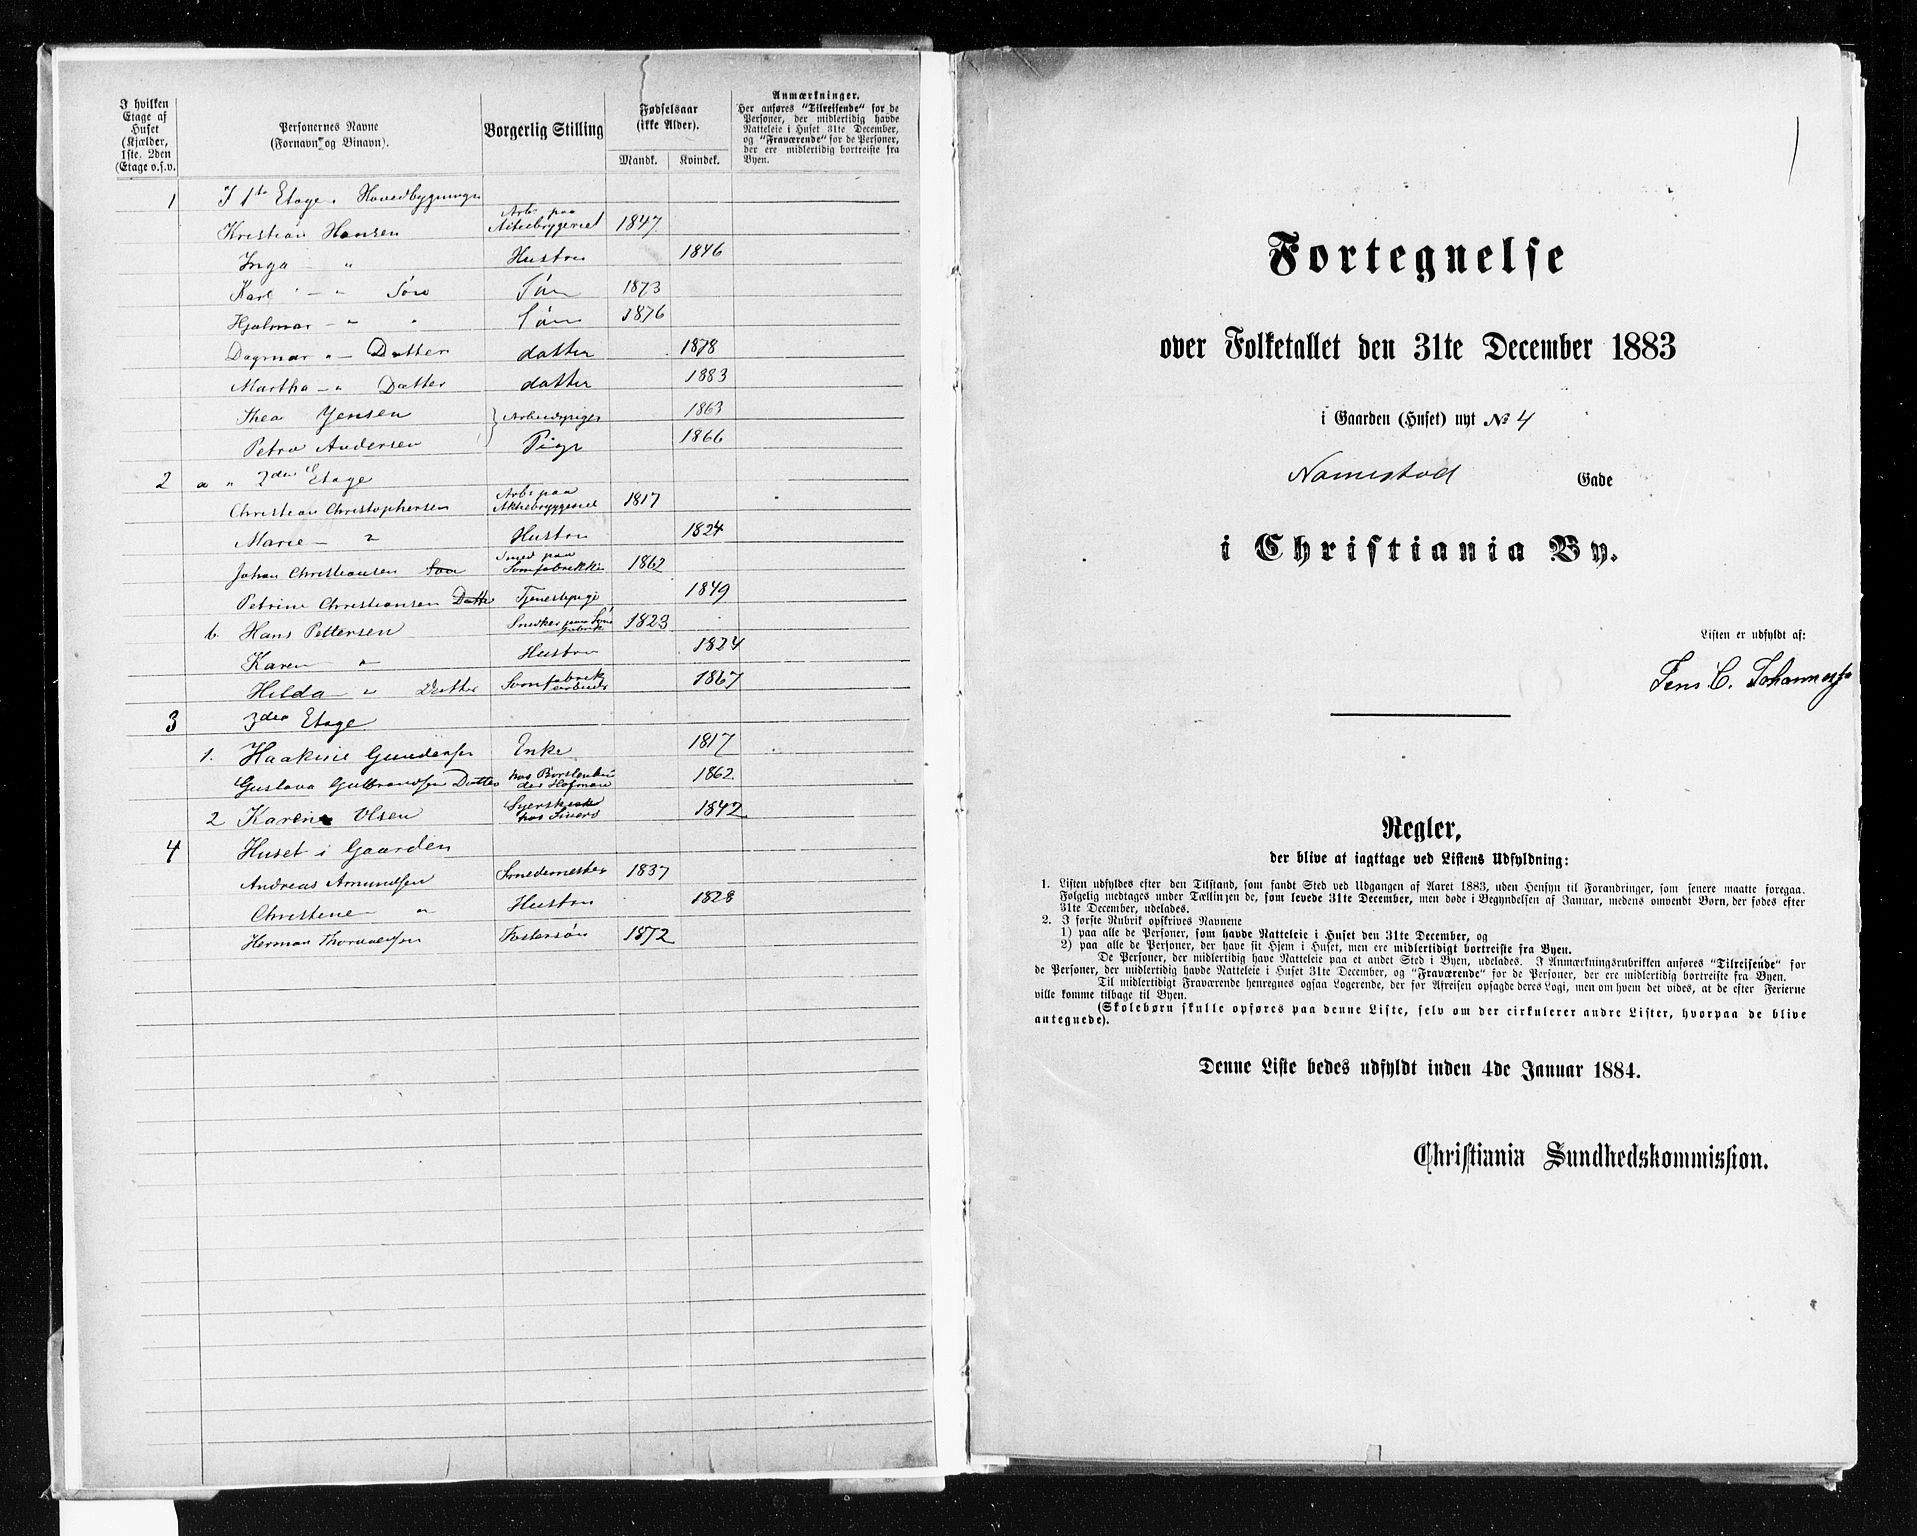 I hvilken
Etage af
Huset
(Kjælder,
1ste, 2den
Etage o.s.v.
Personernes Navne
(Fornavn og Binavn).
Borgerlig Stilling
Fødselsaar
(ikke Alder).
Mandk. Kvindek.
Anmærkninger.
Her anføres "Tilreisende" for de
Personer, der midlertidig havde
Natteleie i Huset 31te December,
og "Fraværende" for de Personer,
der ere midlertidig bortreiste fra
Byen.
1 I 1te Etage i Hovedbygningn
Kristian Hansen Arb. paa Aktiebryggeriet 1847
Inga — " Hustru 1846
Karl — " Søn Søn 1873
Hjalmar — " " Søn 1876
Dagmar " — Datter datter 1878
Martha — " Datter datter 1883
Thea Jensen Arbeidspige 1863
Petra Andersen Pige 1866
2 a " 2den Etage
Christian Christophersen Arb. paa Aktiebryggeriet 1817
Marie — " Hustru 1824
Johan Christiansen Søn Smed paa Sømfabrikken 1862
Petrine Christiansen Datter Tjenestepige 1849
b. Hans Pettersen Snedker paa Sømfabrik 1823
Karen " Hustru 1824
Hilda — " Datter Sømfabrik arbeider 1867
3 3die Etage
1. Haakine Gundersen Enke 1817
Gustava Gulbrandsen Datter hos Børstenbinder Hofman 1862
2 Karine Olsen Syerske hos Sivers 1842
4 Huset i Gaarden
Andreas Amundsen Smedemester 1837
Christine — " Hustru 1828
Herman Thorvaldsen Fostersøn 1872
Fortegnelse
over Folketallet den 31te December 1883
i Gaarden (Huset) nyt № 4
Nannestad Gade
i Christiania By.
Listen er udfyldt af:
Jens C. Johannesen
Regler,
der blive at iagttage ved Listens Udfyldning:
1. Listen udfyldes efter den Tilstand, som fandt Sted ved Udgangen af Aaret 1883, uden Hensyn til Forandringer, som senere maatte foregaa.
Følgelig medtages under Tællingen de, som levede 31te December, men døde i Begyndelsen af Januar, medens omvendt Børn, der fødes efter
31te December, udelades.
2. I første Rubrik opskrives Navnene
1) paa alle de Personer, som havde Natteleie i Huset den 31te December, og
2) paa alle de Personer, der have sit Hjem i Huset, men ere midlertidigt bortreiste fra Byen.
De Personer, der midlertidig have Natteleie paa et andet Sted i Byen, udelades. I Anmærkningsrubrikken anføres "Tilreisende" for
de Personer, der midlertidig havde Natteleie i Huset 31te December, og "Fraværende" for de Personer, der ere midlertidig bortreiste fra Byen.
Til midlertidigt Fraværende henregnes ogsaa Logerende, der før Afreisen opsagde deres Logi, men om hvem det vides, at de efter Ferierne
ville komme tilbage til Byen.
(Skolebørn skulle opføres paa denne Liste, selv om der cirkulerer andre Lister, hvorpaa de blive
antegnede).
Denne Liste bedes udfyldt inden 4de Januar 1884.
Christiania Sundhedskommission.